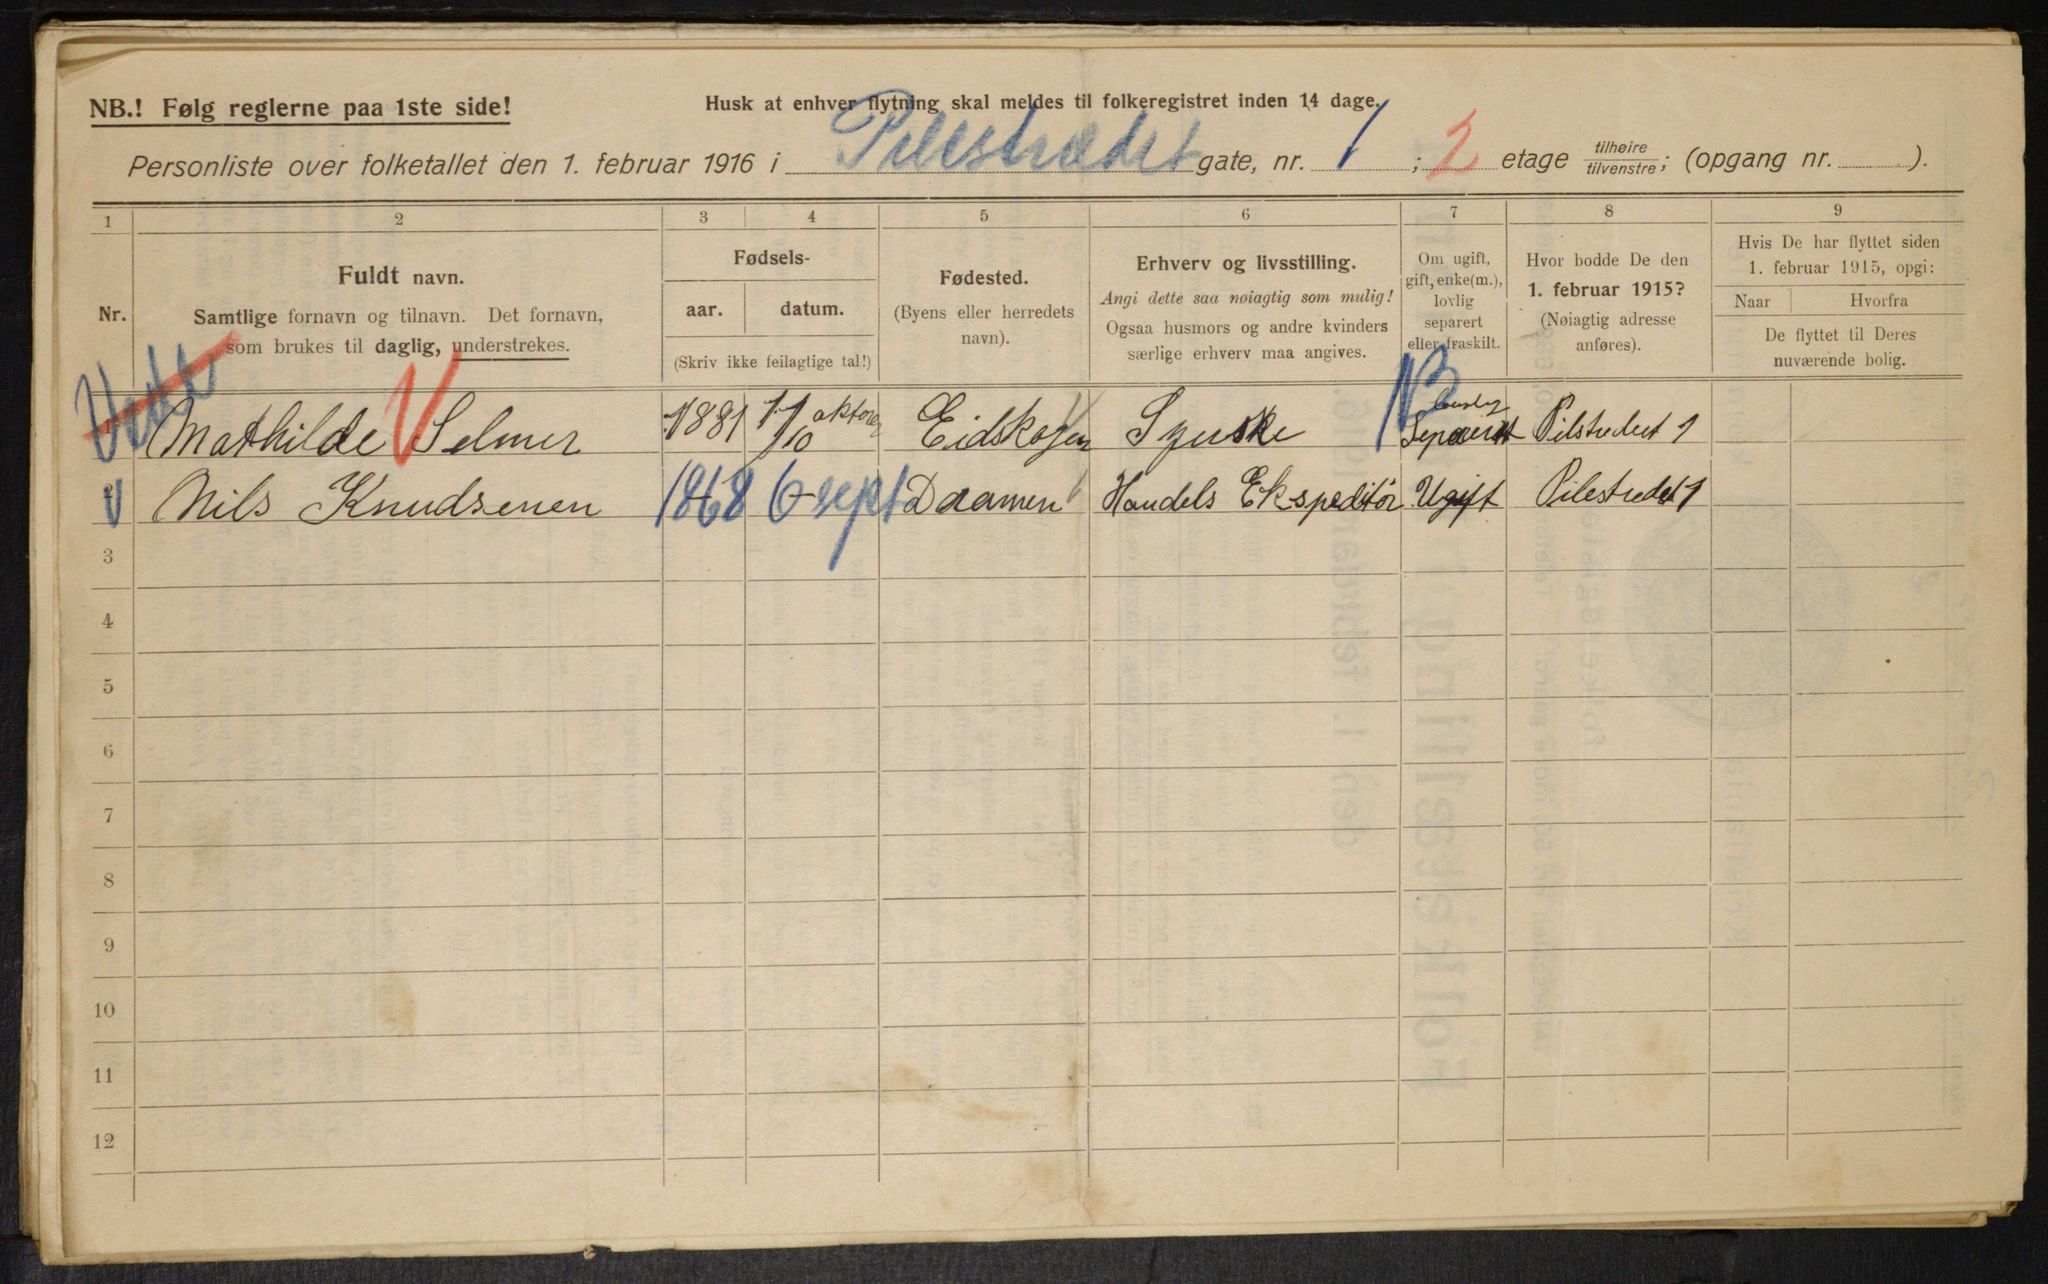 NB.! Følg reglerne paa 1ste side!
Husk at enhver flytning skal meldes til folkeregistret inden 14 dage.
Personliste over folketallet den 1. februar 1916 i Pilestrædet gate, nr. 1; 2 etage tilhøire/tilvenstre; (opgang nr. ).
1 2 3 4 5 6 7 8 9
Nr.
Fuldt navn.
Samtlige fornavn og tilnavn. Det fornavn,
som brukes til daglig, understrekes.
Fødsels-
aar. datum.
(Skriv ikke feilagtige tal!)
Fødested.
(Byens eller herredets
navn).
Erhverv og livsstilling.
Angi dette saa nøiagtig som mulig!
Ogsaa husmors og andre kvinders
særlige erhverv maa angives.
Om ugift,
gift, enke(m.),
lovlig
separert
eller fraskilt.
Hvor bodde De den
1. februar 1915?
(Nøiagtig adresse
anføres).
Hvis De har flyttet siden
1. februar 1915, opgi:
Naar Hvorfra
De flyttet til Deres
nuværende bolig.
NB
Mathilde Selmer 1881 11/10 oktober Eidskogen Syerske Separert Pilstredet 1
Nils Knudsenen 1868 6 sept Dramen Handels Ekspeditør Ugift Pilestredet 1
3
4
5
6
7
8
9
10
11
12